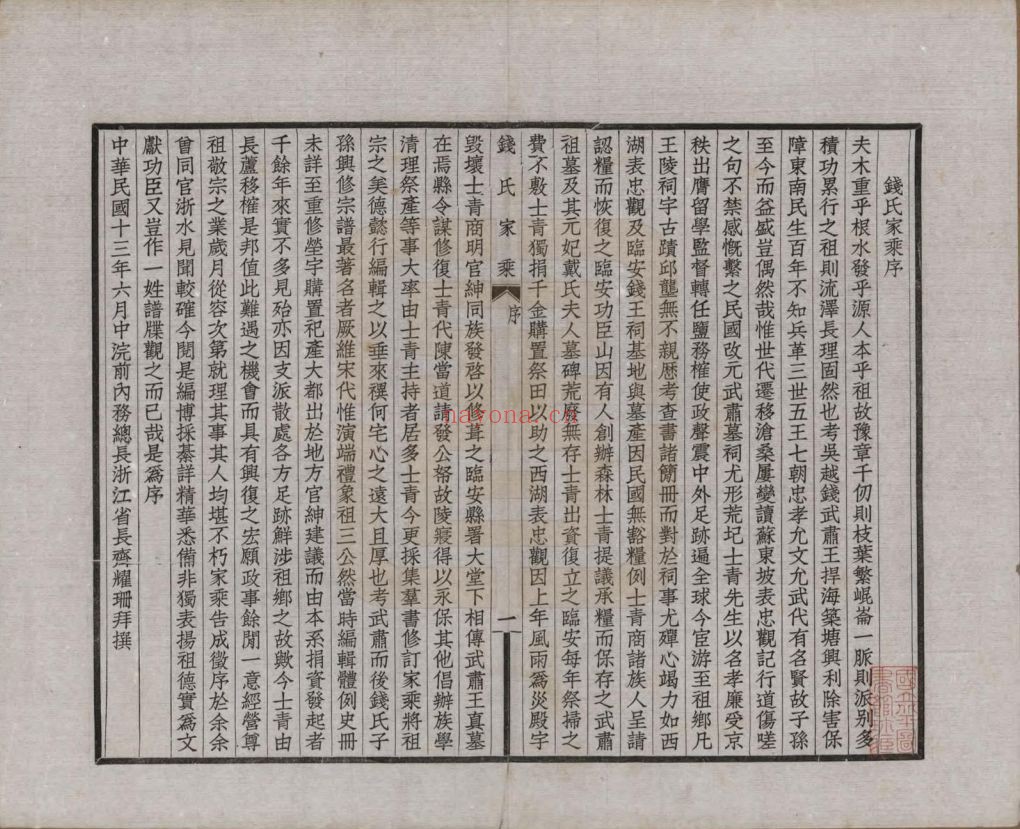 錢氏家乘序
夫木重乎根水發乎源人本乎祖故豫章千仞則枝葉繁崐崙一脈則派別多
積功累行之祖則流澤長理固然也考吳越錢武肅王捍海築塘興利除害保
障東南民生百年不知兵革三世五王七朝忠孝允文允武代有名賢故子孫
至今而益盛豈偶然哉惟世代遷移滄桑屢變讀蘇東坡表忠觀記行道傷嗟
之句不禁感慨繫之民國改元武肅墓祠尤形荒圮士青先生以名孝廉受京
秩出膺留學監督轉任鹽務榷使政聲震中外足跡遍全球今宦游至祖鄉凡
王陵祠宇古蹟邱壟無不親厯考查書諸簡冊而對於祠事尤殫心竭力如西
湖表忠觀及臨安錢王祠基地與墓產因民國無豁糧例士青商諸族人呈請
認糧而恢復之臨安功臣山因有人創辦森林士青提議承糧而保存之武肅
祖墓及其元妃戴氏夫人墓碑荒廢無存士青出資復立之臨安每年祭掃之
費不敷士青獨捐千金購置祭田以助之西湖表忠觀因上年風雨爲災殿宇
錢氏家乘
序
一
毀壞士青商明官紳同族發啓以修葺之臨安縣署大堂下相傳武肅王真墓
在焉縣令謀修復士青代陳當道請發公帑故陵寢得以永保其他倡辦族學
清理祭產等事大率由士青主持者居多士青今更採集羣書修訂家乘將祖
宗之美德懿行編輯之以垂來禩何宅心之遠大且厚也考武肅而後錢氏子
孫興修宗譜最著名者厥維宋代惟演端禮象祖三公然當時編輯體例史冊
未詳至重修塋宇購置祀產大都出於地方官紳建議而由本系捐資發起者
千餘年來實不多見殆亦因支派散處各方足跡鮮涉祖鄉之故歟今士青由
長蘆移榷是邦值此難遇之機會而具有興復之宏願政事餘閒一意經營尊
祖敬宗之業歲月從容次第就理其事其人均堪不朽家乘告成徵序於余余
曾同官浙水見聞較確今閱是編博採綦詳精華悉備非獨表揚祖德實爲文
獻功臣又豈作一姓譜牒觀之而已哉是爲序
中華民國十三年六月中浣前內務總長浙江省長齊耀珊拜撰
nayona.cn